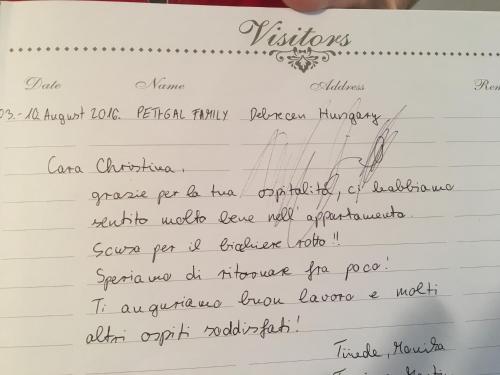 Visitors
Date Name Address Rem
03.-10. August 2016. PETHGAL FAMILY Debrecen Hungary
Cara Christina,
grazie per la tua ospitalità, ci habbiamo
sentito molto bene nell' appartamento.
Scusa per il bichiere rotto!!
Speriamo di ritornare fra poco!
Ti auguriamo buon lavoro e molti
altri ospiti soddisfati!
Tinede, Monika